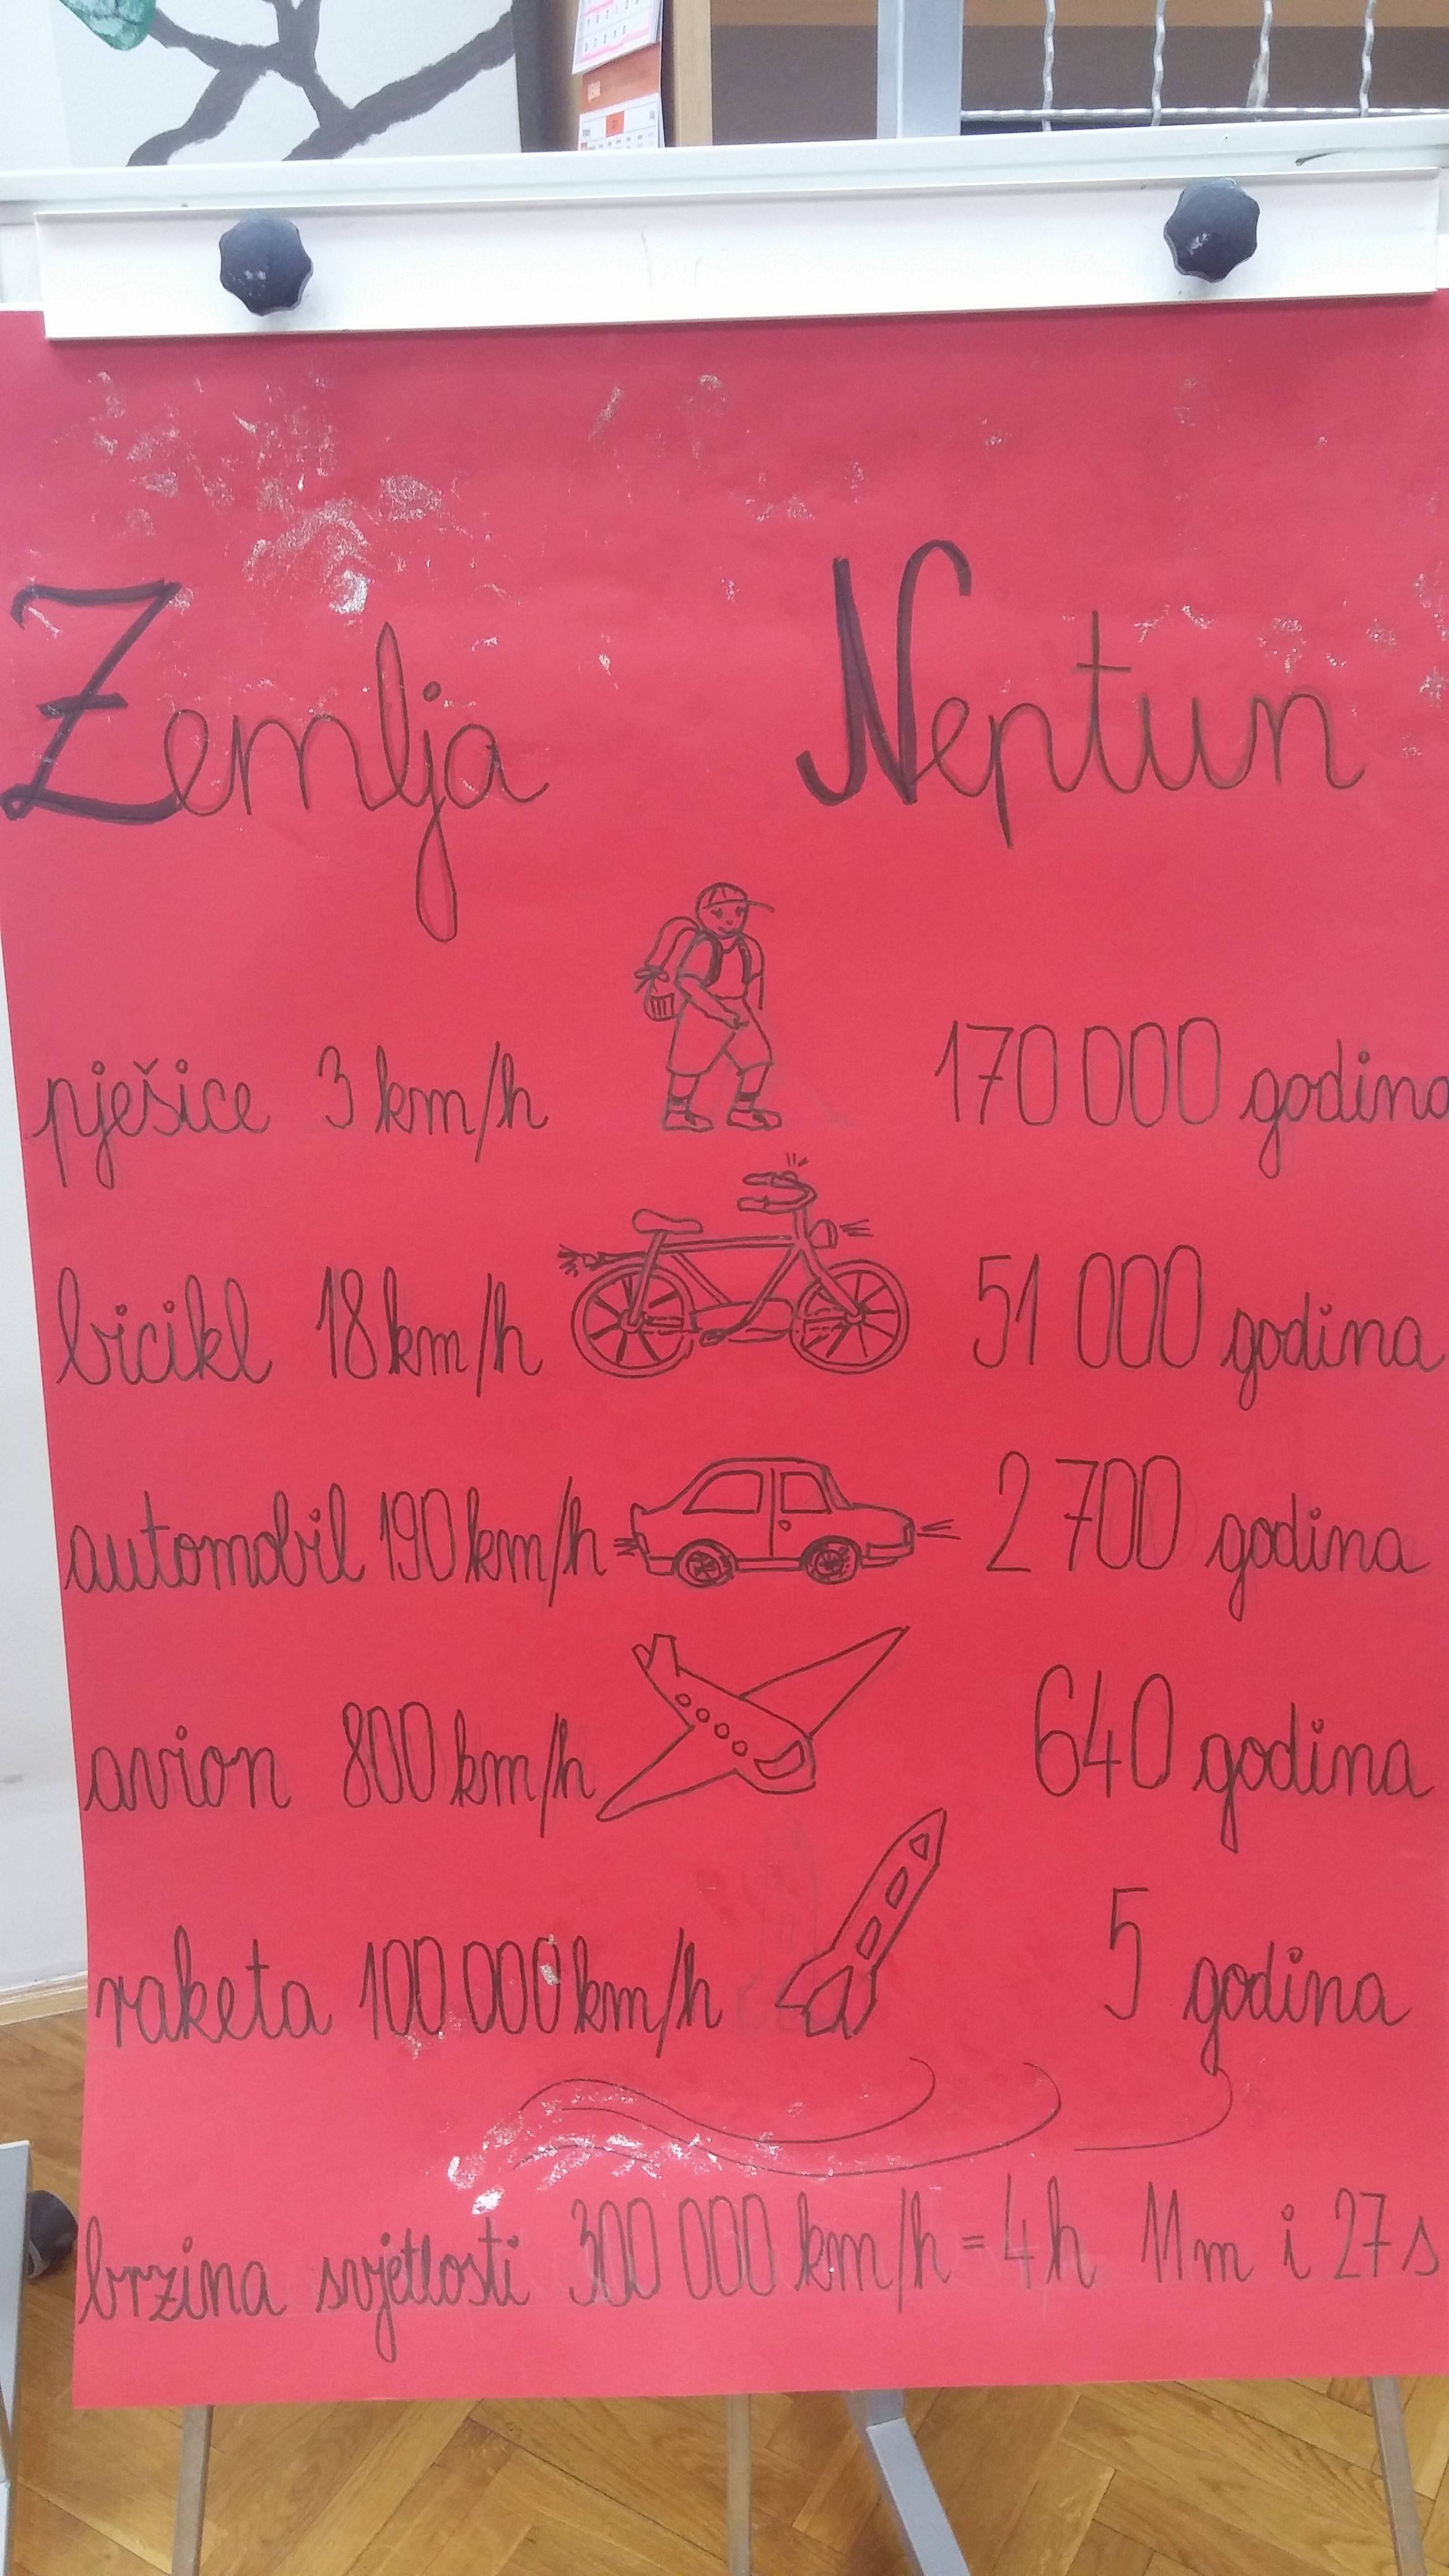 Zemlja Neptun
pješice 3 km/h 170 000 godina
bicikl 18 km/h 51 000 godina
automobil 190 km/h 2 700 godina
avion 800 km/h 640 godina
raketa 100 000 km/h 5 godina
brzina svjetlosti 300 000 km/h = 4h 11m i 27s